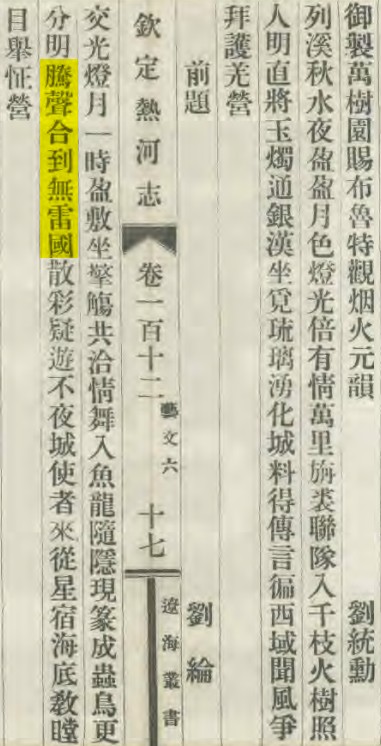 御製萬樹園賜布魯特觀烟火元韻　劉統勳
列溪秋水夜盈盈月色燈光倍有情萬里旃裘聯隊入千枝火樹照
人明直將玉燭通銀漢坐覓琉璃湧化城料得傳言徧西域聞風爭
拜護羌營
前題　劉綸
欽定熱河志　卷一百十二　藝文六　十七　遼海叢書
交光燈月一時盈敷坐擎觴共洽情舞入魚龍隨隱現篆成蟲鳥更
分明騰聲合到無雷國散彩疑遊不夜城使者來從星宿海底教瞠
目舉怔營